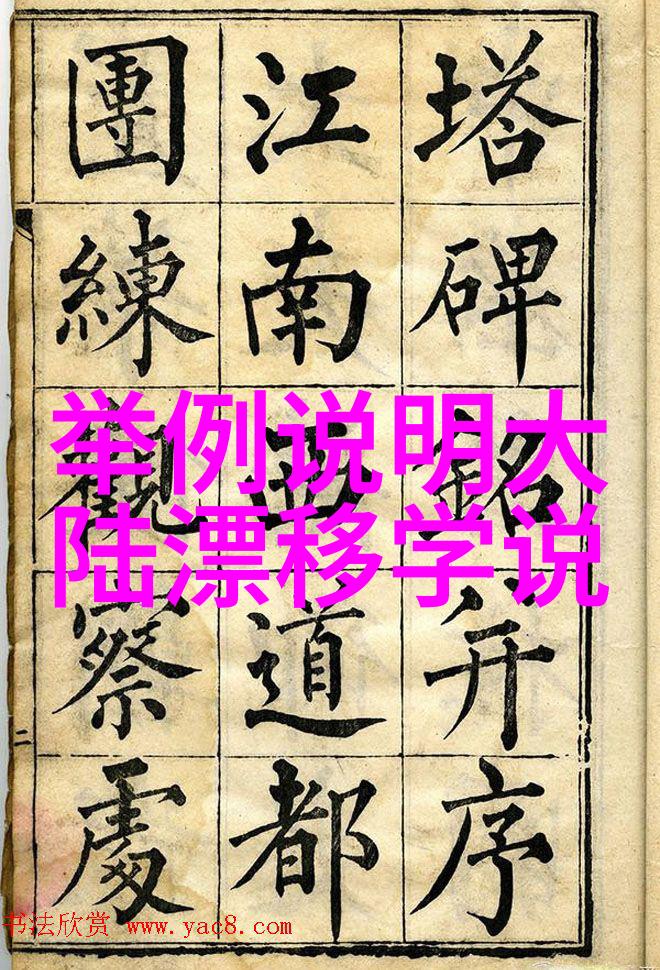 塔碑銘并序
江南西道都
團練觀察處
二
举例说明大
陆漂移学说
书法欣赏 www.yac8.com